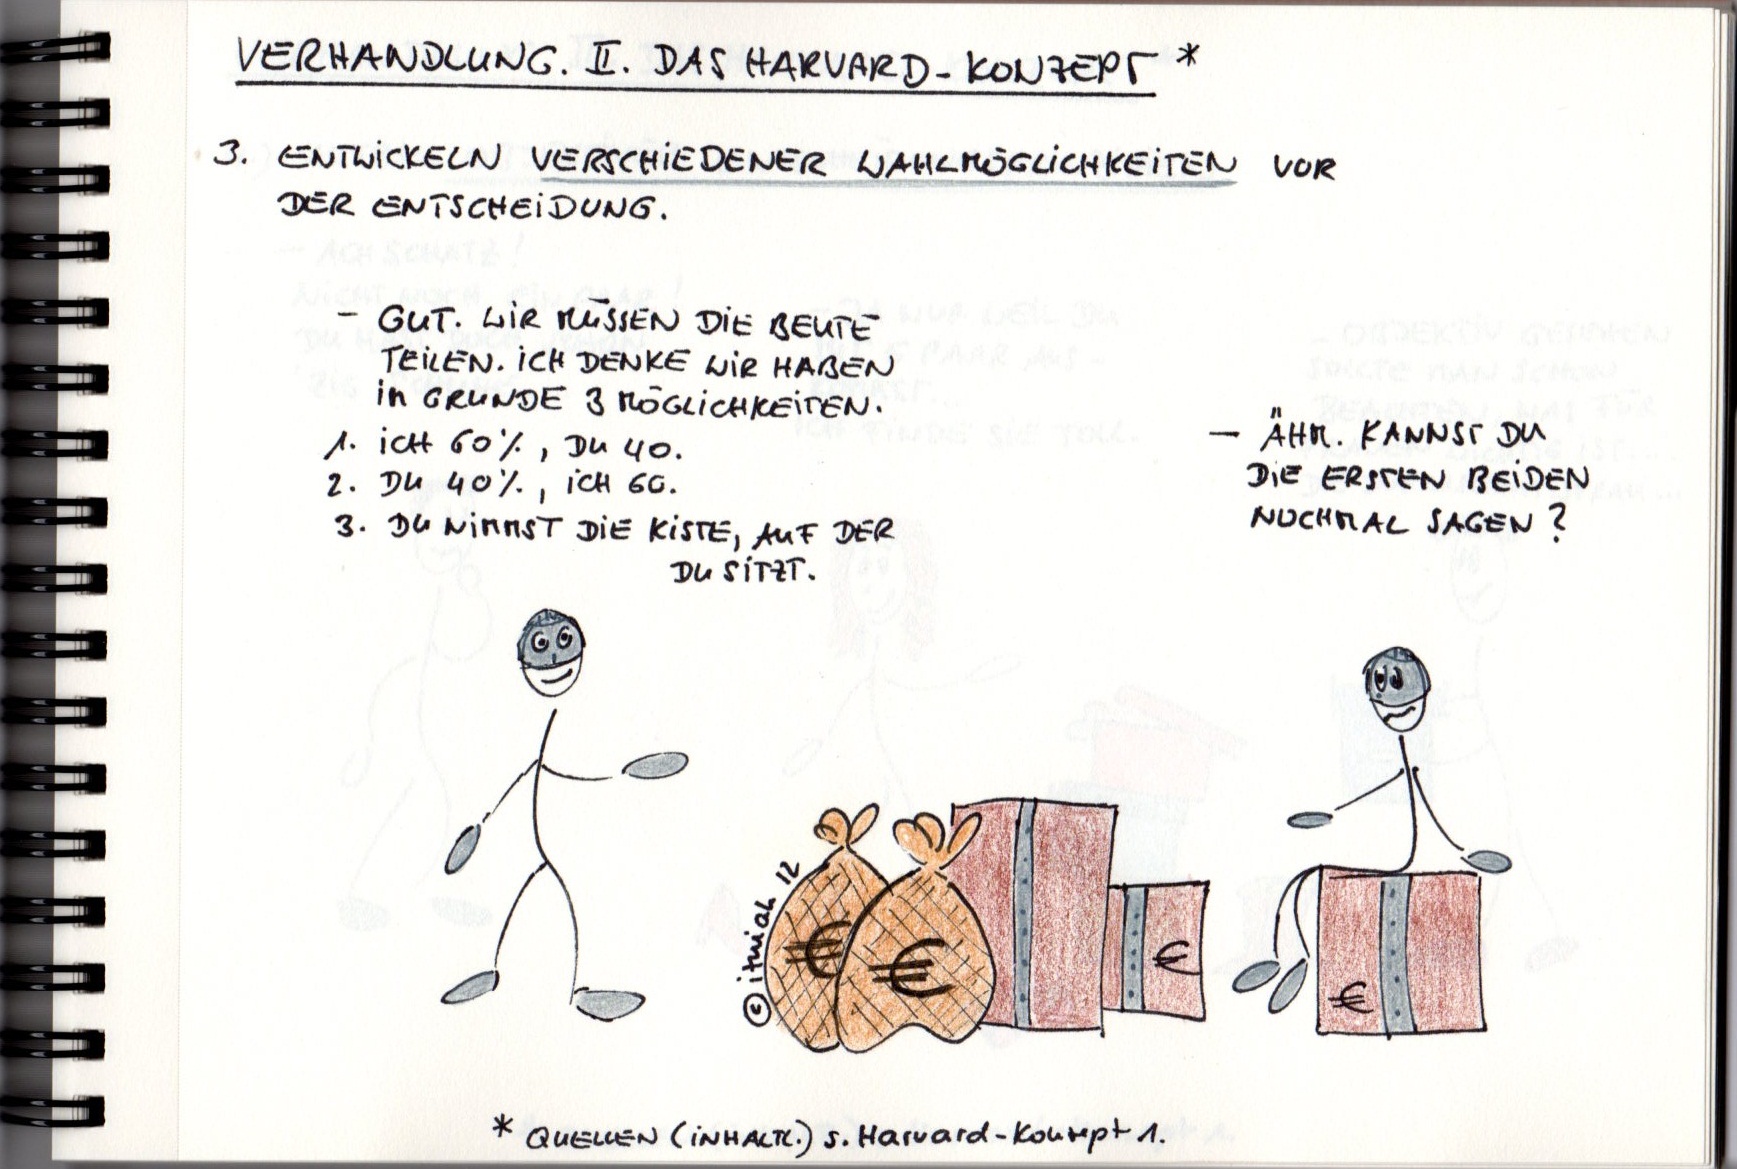 VERHANDLUNG. II. DAS HARVARD-KONZEPT *
3. ENTWICKELN VERSCHIEDENER WAHLMÖGLICHKEITEN VOR
DER ENTSCHEIDUNG.
- GUT. WIR MÜSSEN DIE BEUTE
TEILEN. ICH DENKE WIR HABEN
IM GRUNDE 3 MÖGLICHKEITEN.
1. ICH 60%, DU 40.
2. DU 40%, ICH 60.
3. DU NIMMST DIE KISTE, AUF DER
DU SITZT.
- ÄHM. KANNST DU
DIE ERSTEN BEIDEN
NOCHMAL SAGEN?
© itmiah 12
€
€
€
€
* QUELLEN (INHALTL.) s. Harvard-Konzept 1.